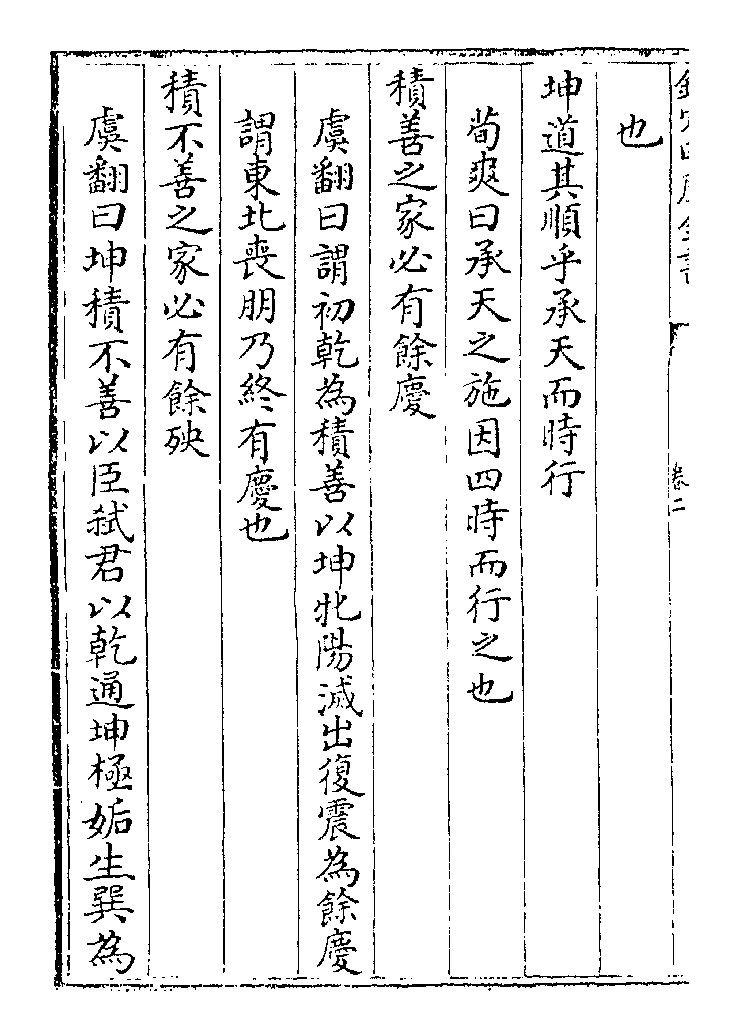 也
坤道其順乎承天而時行
荀爽曰承天之施因四時而行之也
積善之家必有餘慶
虞翻曰謂初乾為積善以坤牝陽滅出復震為餘慶
謂東北喪朋乃終有慶也
積不善之家必有餘殃
虞翻曰坤積不善以臣弑君以乾通坤極姤生巽為
卷二